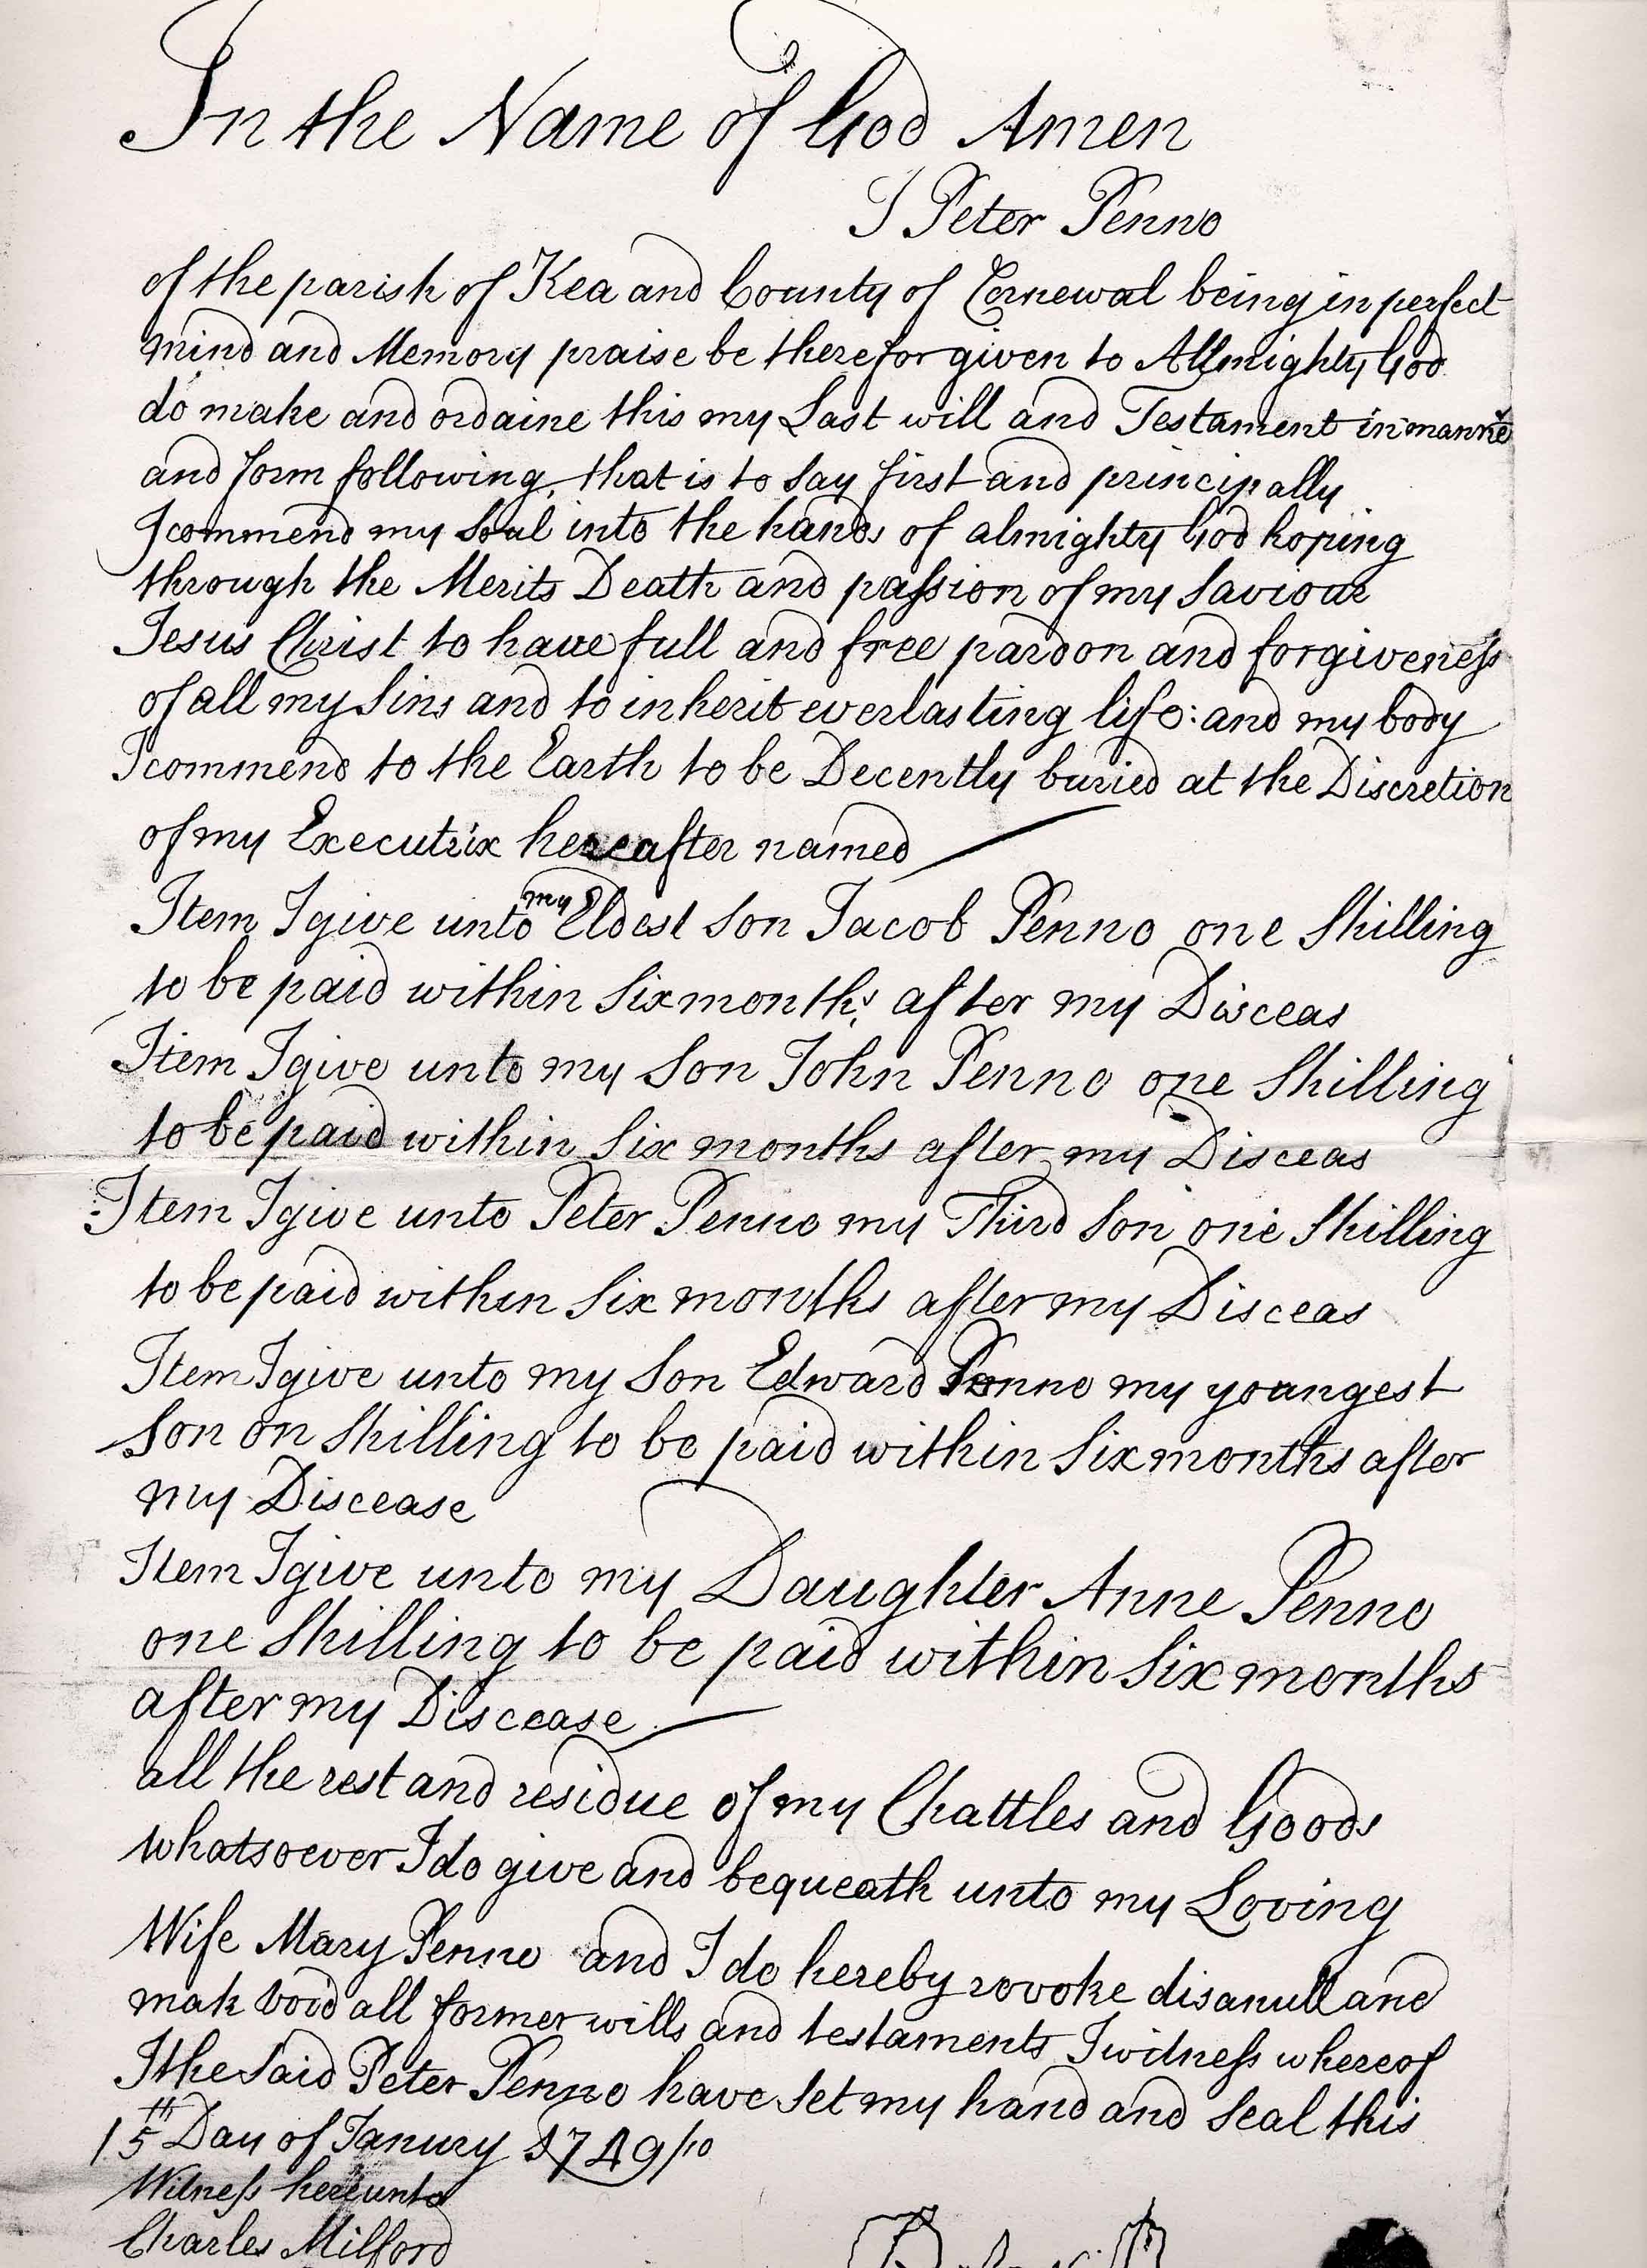 In the Name of God Amen
I Peter Penno
of the parish of Kea and County of Cornewal being in perfect
mind and Memory praise be therefor given to Allmighty God
do make and ordaine this my Last will and Testament in manne
and form following, that is to say first and principally
I commend my Soul into the hands of almighty God hoping
through the Merits Death and passion of my Saviour
Jesus Christ to have full and free pardon and forgiveness
of all my Sins and to inherit everlasting life: and my body
I commend to the Earth to be Decently buried at the Discretion
of my Executrix hereafter named
Item I give unto my Eldest Son Jacob Penno one Shilling
to be paid within Six months after my Disceas
Item I give unto my Son John Penno one Shilling
to be paid within Six months after my Disceas
Item I give unto Peter Penno my Third Son one Shilling
to be paid within Six months after my Disceas
Item I give unto my Son Edward Penno my youngest
Son on Shilling to be paid within Six months after
my Discease
Item I give unto my Daughter Anne Penno
one Shilling to be paid within Six months
after my Discease
all the rest and residue of my Chattles and Goods
whatsoever I do give and bequeath unto my Loving
Wife Mary Penno and I do hereby revoke disanull and
mak void all former wills and testaments I witness whereof
I the Said Peter Penno have Set my hand and Seal this
15th Day of Janury 1749/10
Witness hereunto
Charles Milford